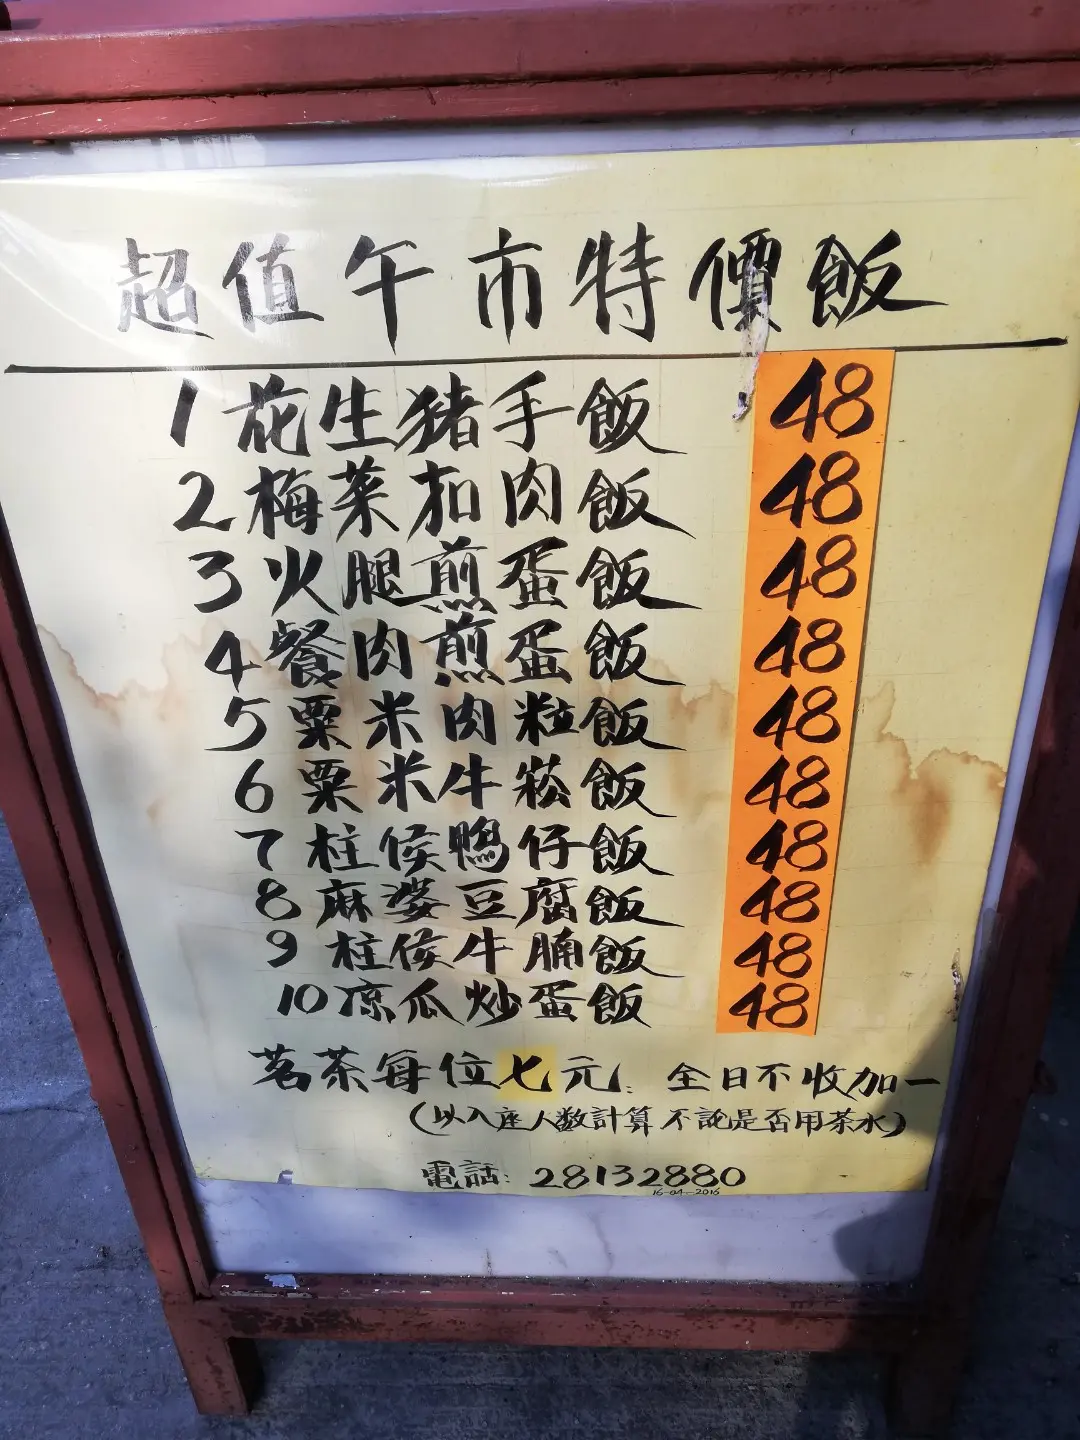 超值午市特價飯
1 花生豬手飯 48
2 梅菜扣肉飯 48
3 火腿煎蛋飯 48
4 餐肉煎蛋飯 48
5 粟米肉粒飯 48
6 粟米牛崧飯 48
7 柱侯鴨仔飯 48
8 麻婆豆腐飯 48
9 柱侯牛腩飯 48
10 凉瓜炒蛋飯 48
茗茶每位七元: 全日不收加一
(以入座人数計算 不論是否用茶水)
電話: 28132880
16-04-2016